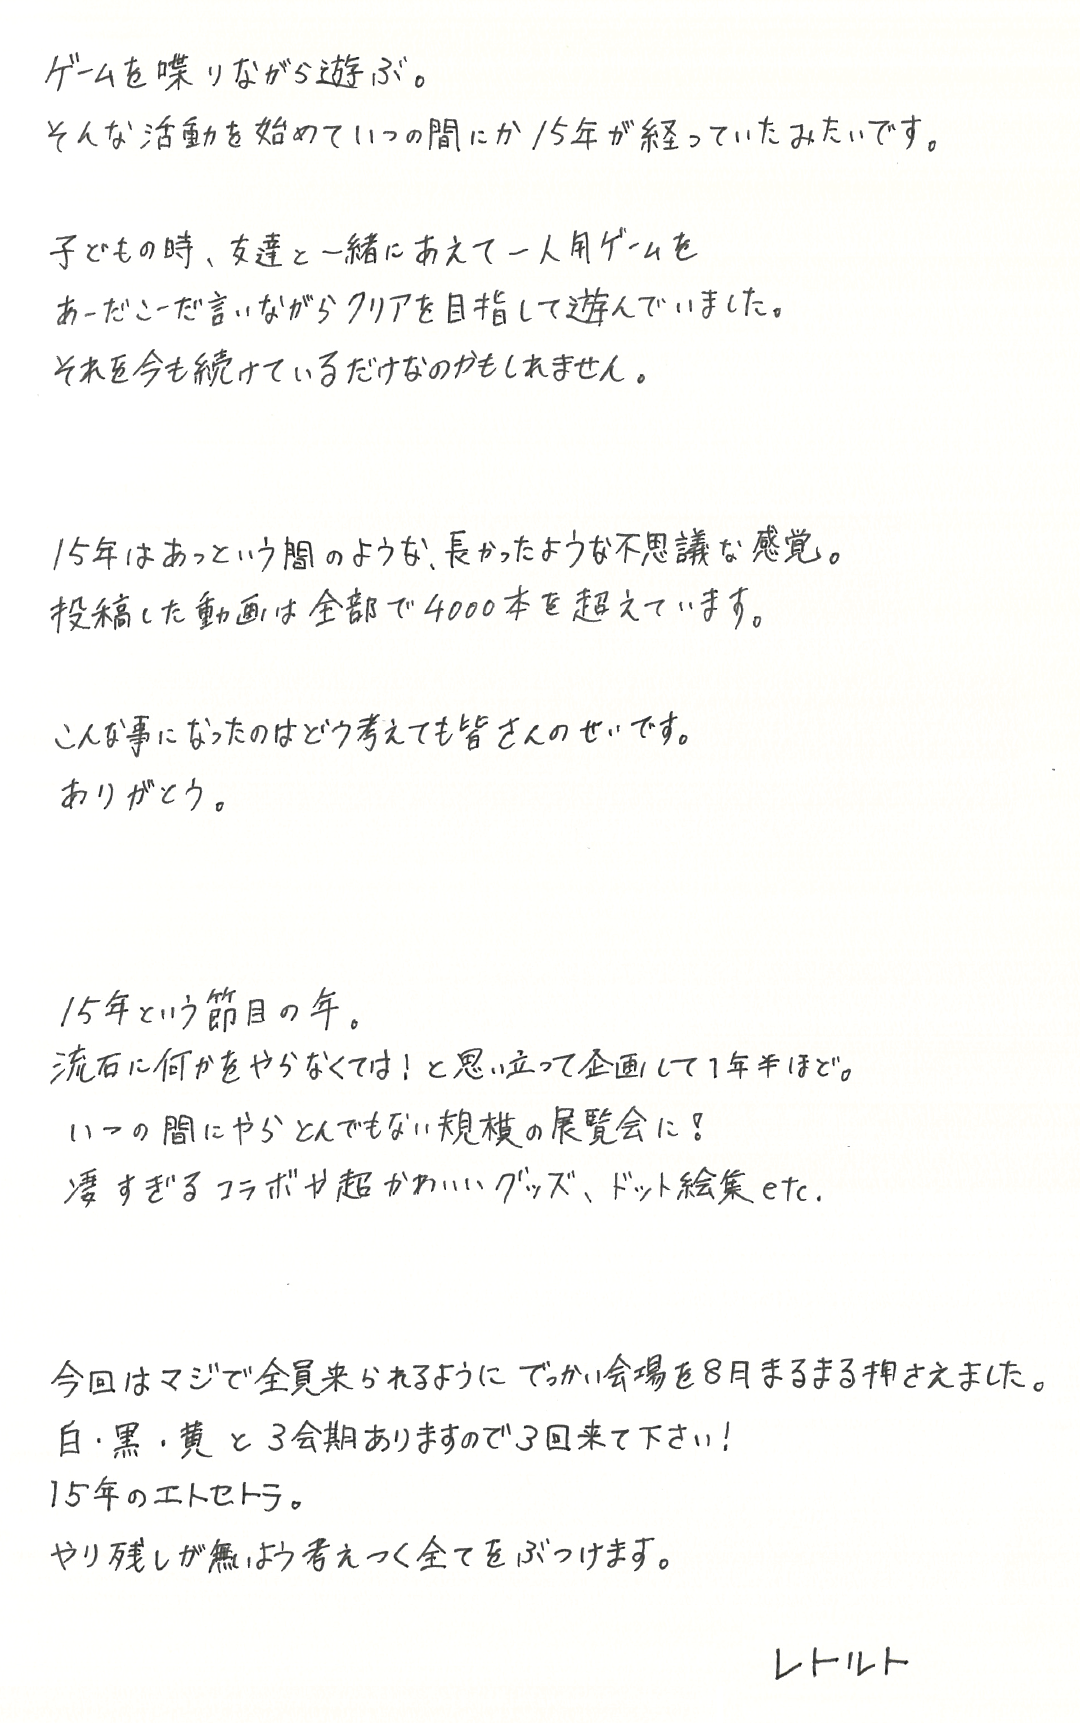 ゲームを喋りながら遊ぶ。
そんな活動を始めていつの間にか15年が経っていたみたいです。
子どもの時、友達と一緒にあえて一人用ゲームを
あーだこーだ言いながらクリアを目指して遊んでいました。
それを今も続けているだけなのかもしれません。
15年はあっという間のような、長かったような不思議な感覚。
投稿した動画は全部で4000本を超えています。
こんな事になったのはどう考えても皆さんのせいです。
ありがとう。
15年という節目の年。
流石に何かをやらなくては!と思い立って企画して1年半ほど。
いつの間にやらとんでもない規模の展覧会に!
凄すぎるコラボや超かわいいグッズ、ドット絵集etc.
今回はマジで全員来られるようにでっかい会場を8月まるまる押さえました。
白・黒・黄と3会期ありますので3回来て下さい!
15年のエトセトラ。
やり残しが無いよう考えつく全てをぶつけます。
レトルト